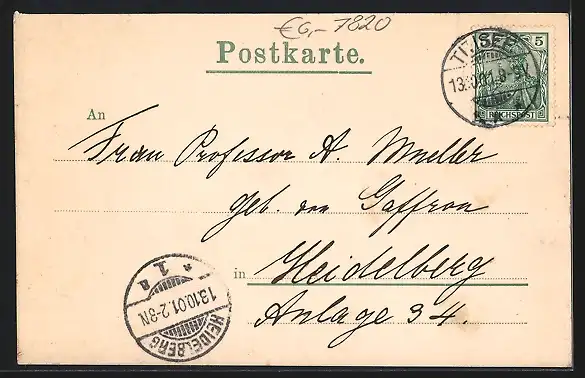 €6,- 7820
Postkarte.
5
TITISEE
REICHSPOST
An
Frau Professor A. Mueller
geb. von Gaffron
in Heidelberg
Anlage 34.
HEIDELBERG
13.10.01.2-3N
* 1 a